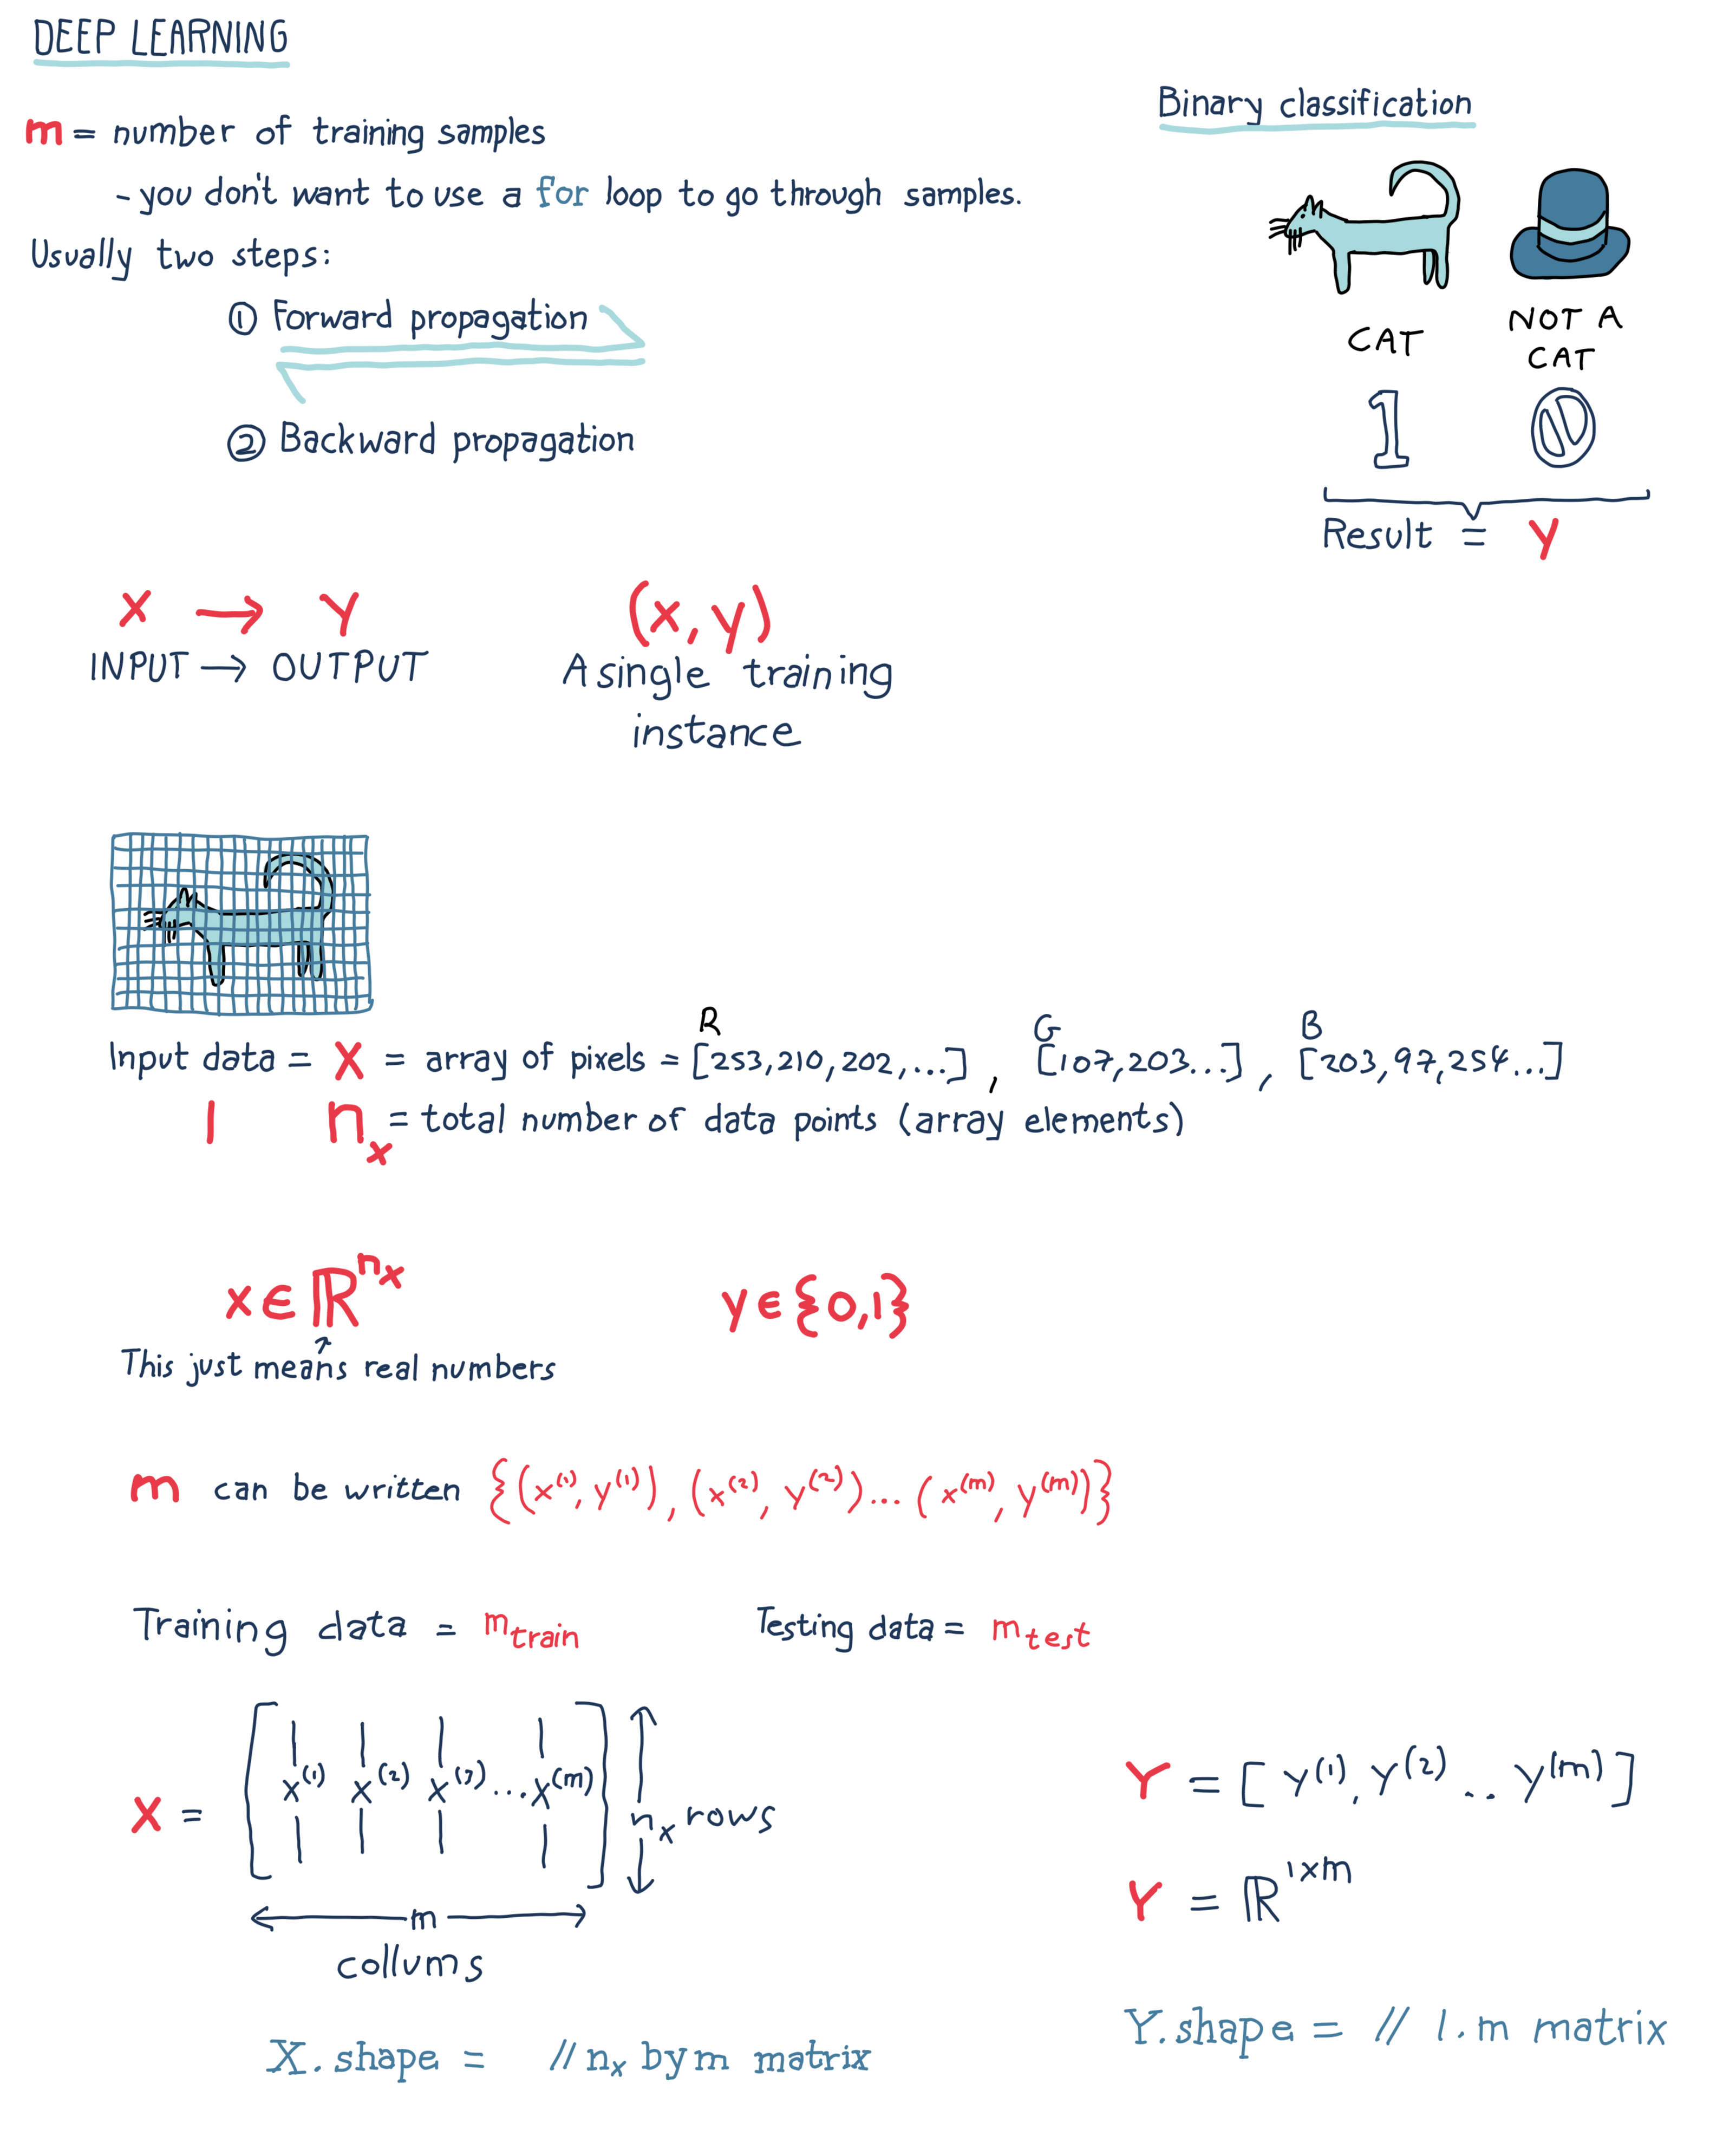 DEEP LEARNING
m = number of training samples
- you don't want to use a for loop to go through samples.
Usually two steps:
① Forward propagation
② Backward propagation
Binary classification
CAT
NOT A
CAT
1 0
Result = y
x → y
INPUT → OUTPUT
(x, y)
A single training
instance
R G B
Input data = x = array of pixels = [253,210,202,...] , [107,203...] , [203,97,254...]
1 nₓ = total number of data points (array elements)
x ∈ ℝ^nₓ
This just means real numbers
y ∈ {0,1}
m can be written {(x⁽¹⁾, y⁽¹⁾), (x⁽²⁾, y⁽²⁾)... (x⁽ᵐ⁾, y⁽ᵐ⁾)}
Training data = m train
Testing data = m test
X = [x⁽¹⁾ x⁽²⁾ x⁽³⁾ ... x⁽ᵐ⁾] nₓ rows
m
collums
X.shape = // nₓ by m matrix
Y = [ y⁽¹⁾, y⁽²⁾ .. y⁽ᵐ⁾ ]
Y = ℝ¹ˣᵐ
Y.shape = // 1.m matrix